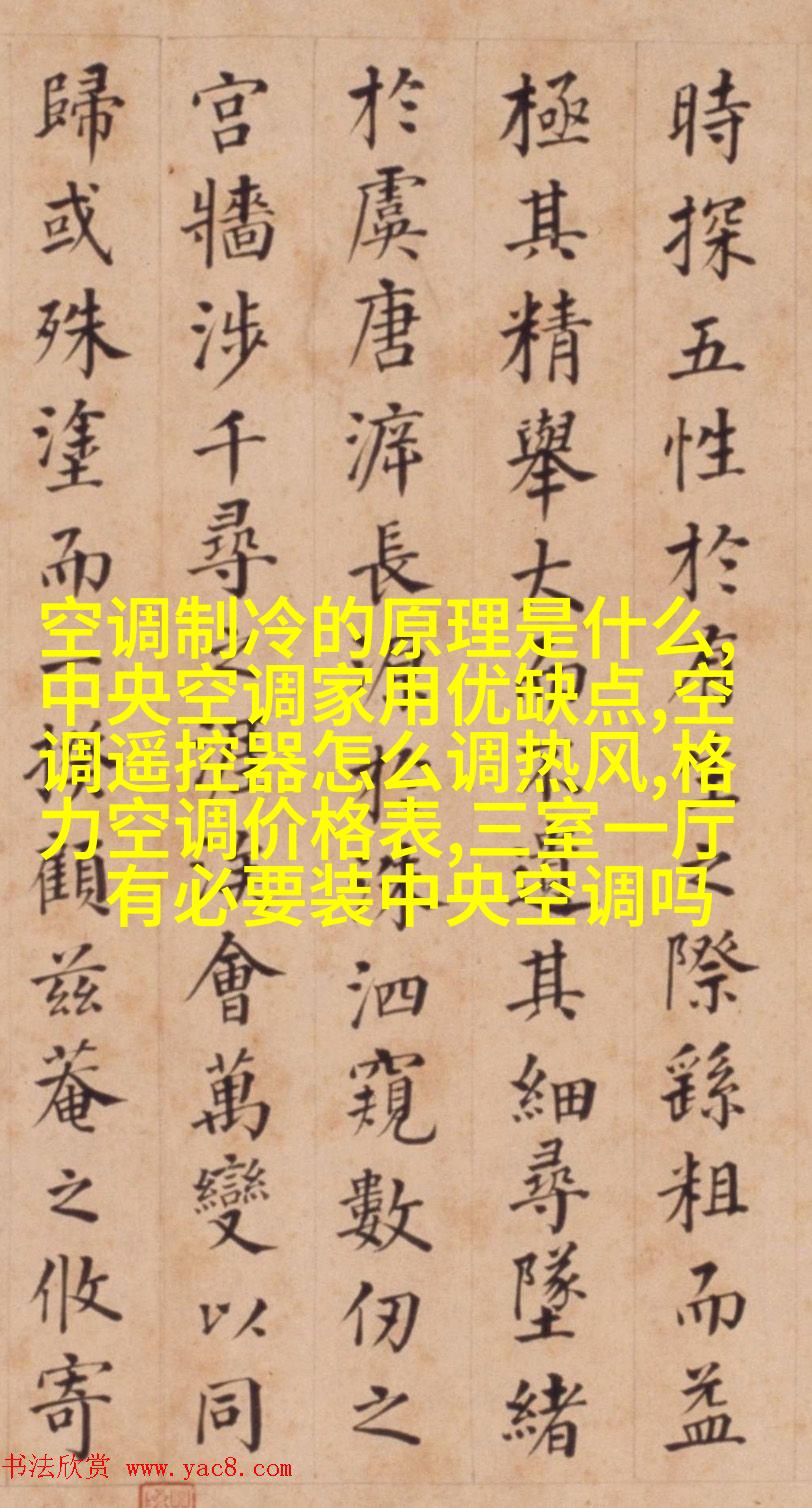 時探五性於有之際繇粗而益
極其精舉大不遺其細尋墜緒
於虞唐長源於洙泗窺數仞之
宮牆涉千尋之會萬變以同
歸或殊塗而一顧茲菴之攸寄
空调制冷的原理是什么,
中央空调家用优缺点,空
调遥控器怎么调热风,格
力空调价格表,三室一厅
有必要装中央空调吗
书法欣赏 www.yac8.com